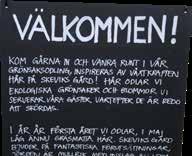 VÄLKOMMEN!
KOM GÄRNA IN OCH VANDRA RUNT I VÅR
GRÖNSAKSODLING, INSPIRERAS AV VÄXTKRAFTEN
HÄR PÅ SKEVIKS GÅRD! HÄR ODLAR VI
EKOLOGISKA GRÖNSAKER OCH BLOMMOR. VI
SERVERAR VÅRA GÄSTER, VARTEFTER DE ÄR REDO
ATT SKÖRDAS.
I ÅR ÄR FÖRSTA ÅRET VI ODLAR, I MAJ
LÅG ÄNNU GRÄSMATTA HÄR. SKEVIKS GÅRD
BJUDER PÅ FANTASTISKA FÖRUTSÄTTNINGAR,
JORDEN ÄR